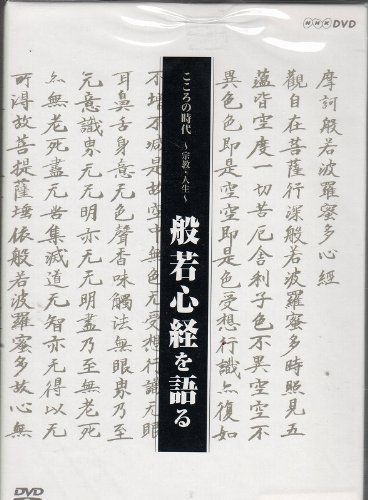 NHK DVD
摩訶般若波羅蜜多心經
觀自在菩薩行深般若波羅蜜多時照見五
蘊皆空度一切苦厄舍利子色不異空空不
異色色即是空空即是色受想行識亦復如
こころの時代
~宗教・人生~
般若心経を語る
不增不減是故空中無色无受想行識无眼
耳鼻舌身意无色聲香味觸法無眼界乃至
无意識界无无明亦无无明盡乃至無老死
亦無老死盡无苦集滅道无智亦无得以无
所得故菩提薩埵依般若波羅蜜多故心無
DVD